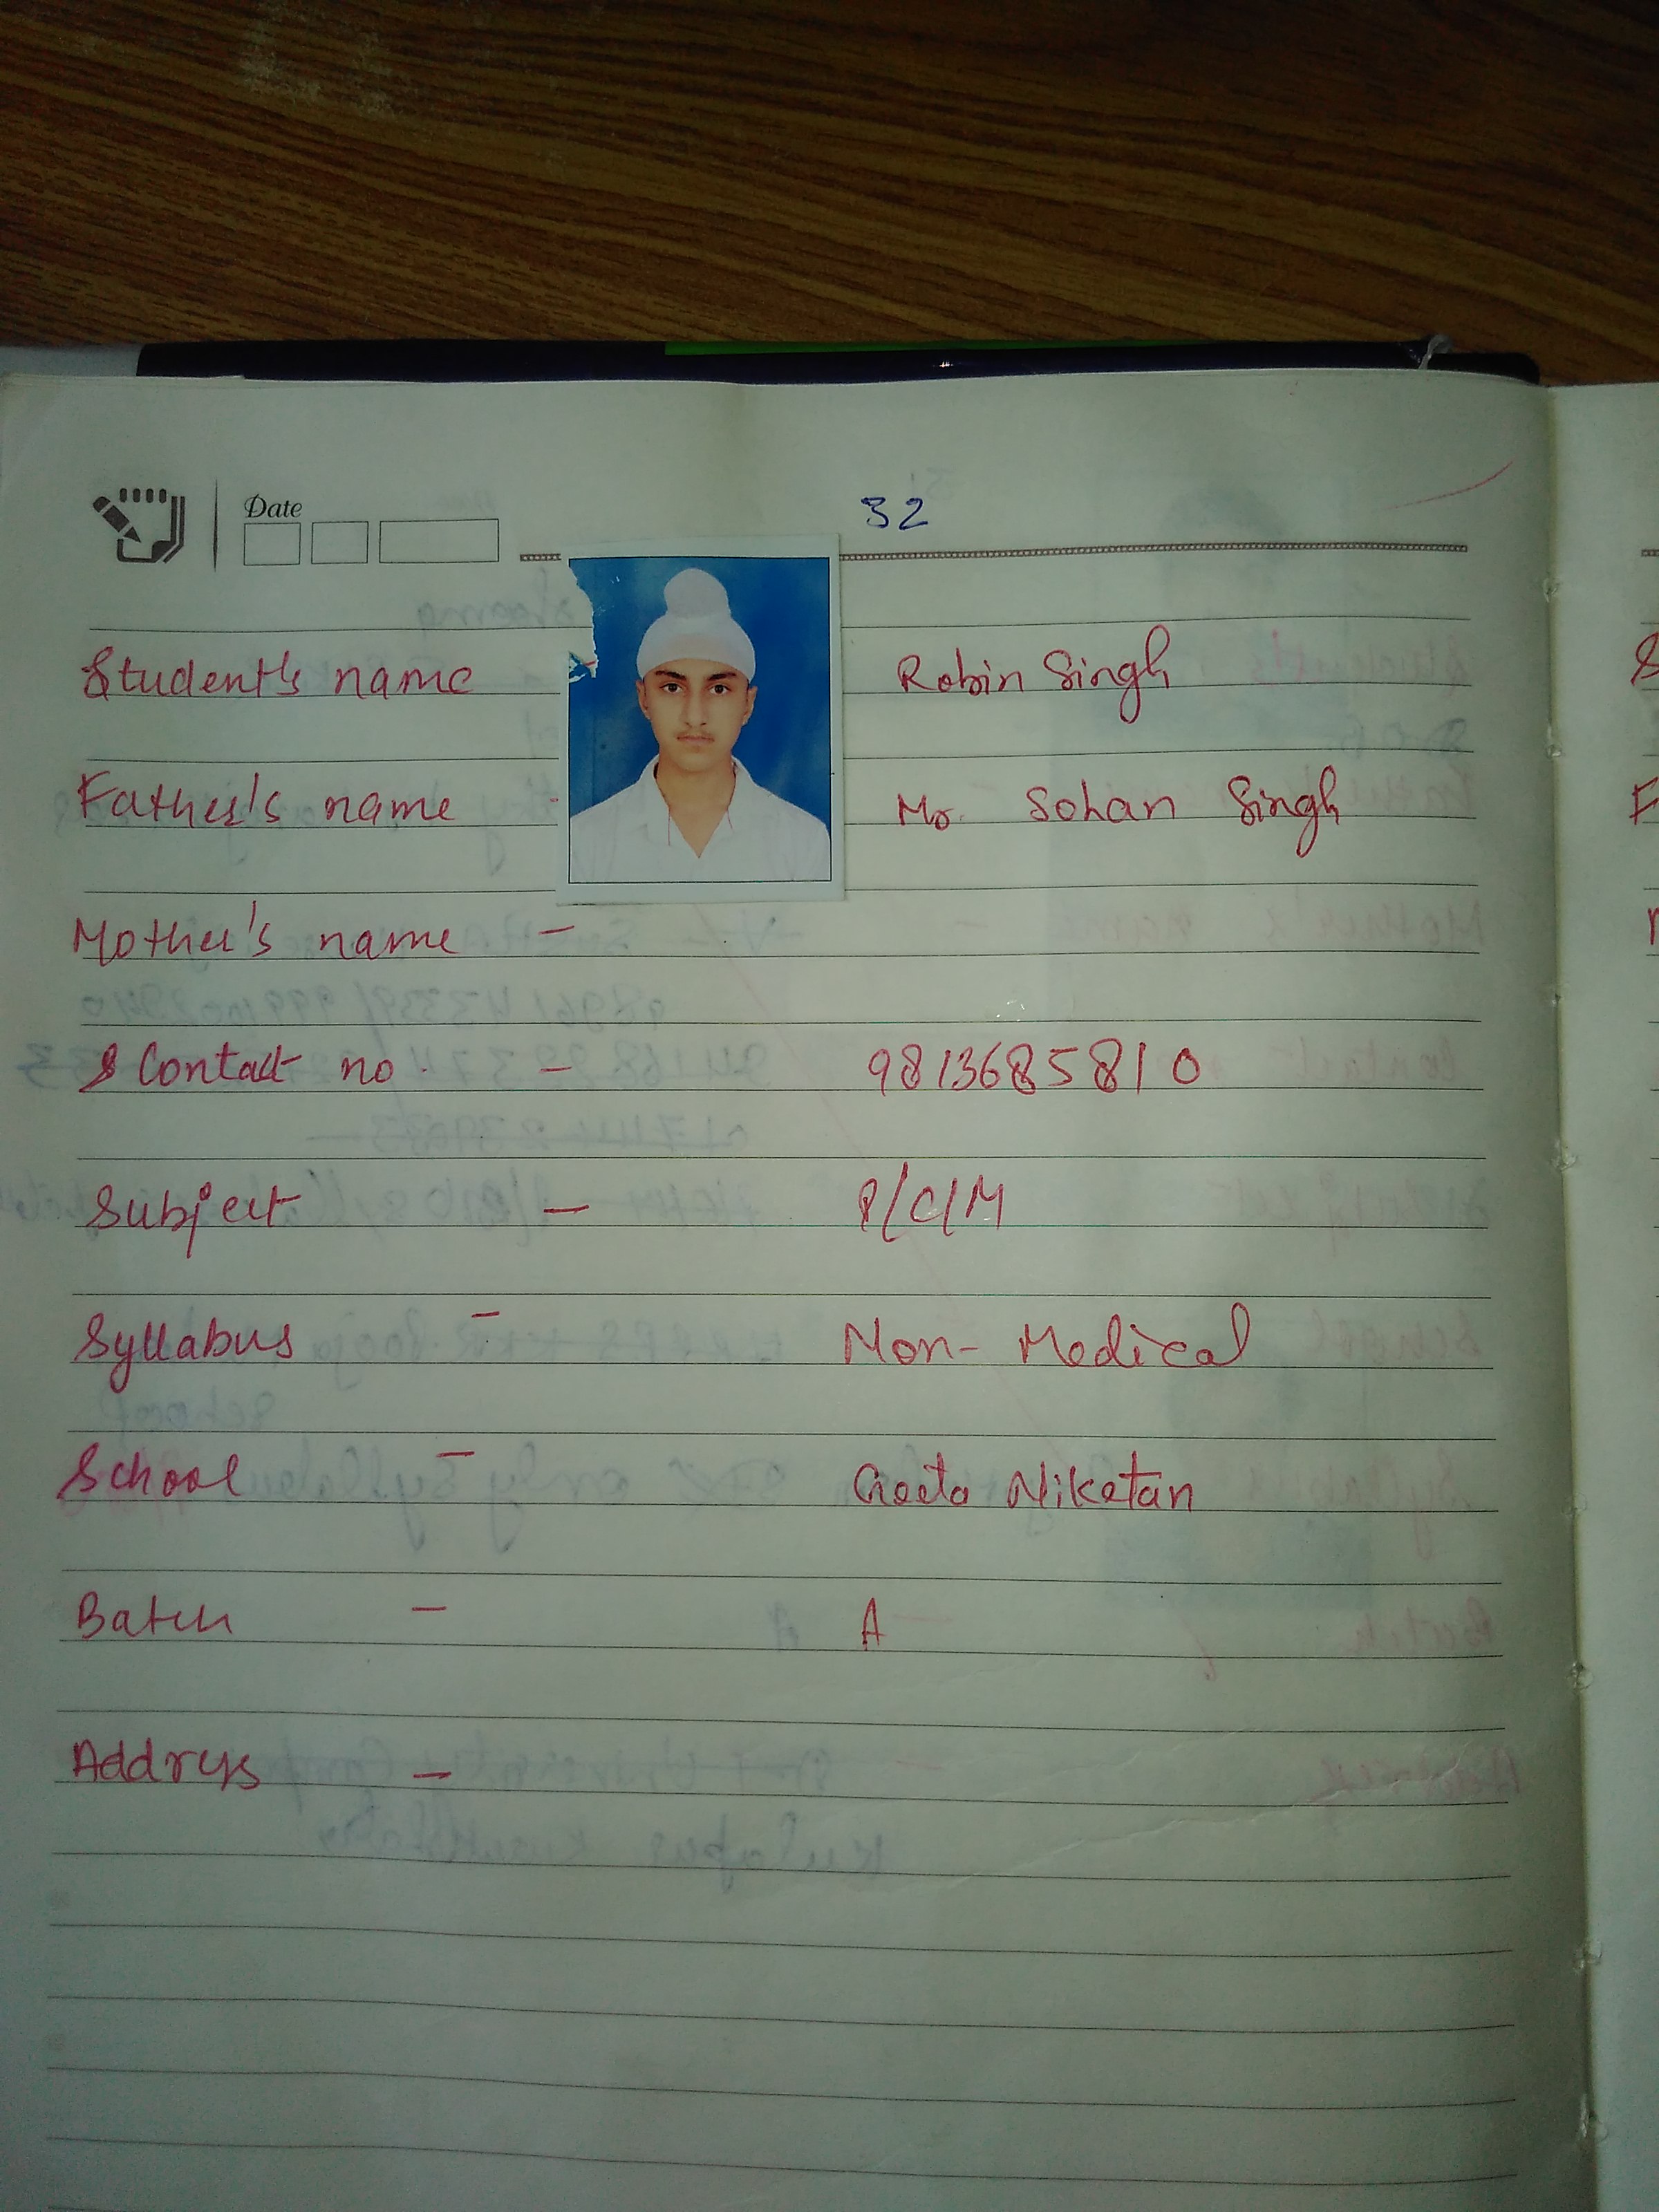 Date
32
Student's name Robin Singh
Father's name - Mr. Sohan Singh
Mother's name -
Contact no. - 9813685810
Subject - P/C/M
Syllabus - Non-Medical
School - Geeta Niketan
Batch - A
Address -